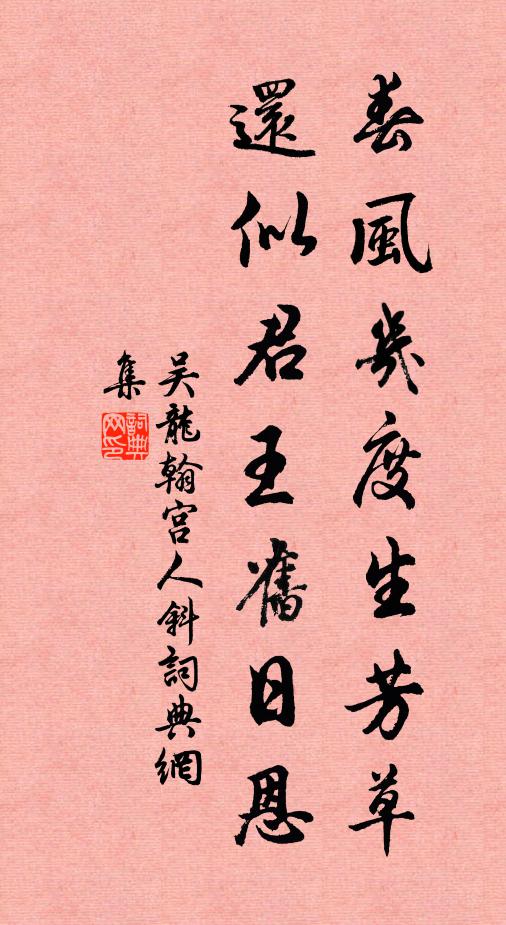 春風幾度生芳草
還似君王舊日恩
吳龍翰宫人斜詞典網
集
詞典
网印